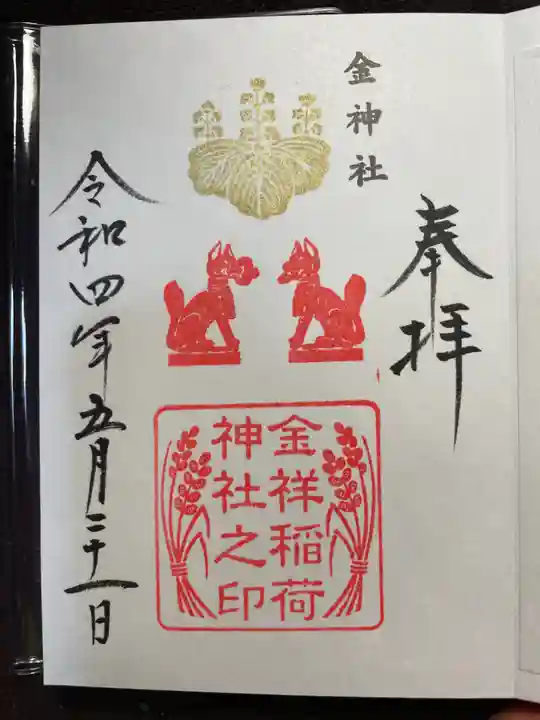 奉拝
金神社
金祥稲荷
神社之印
令和四年五月二十一日